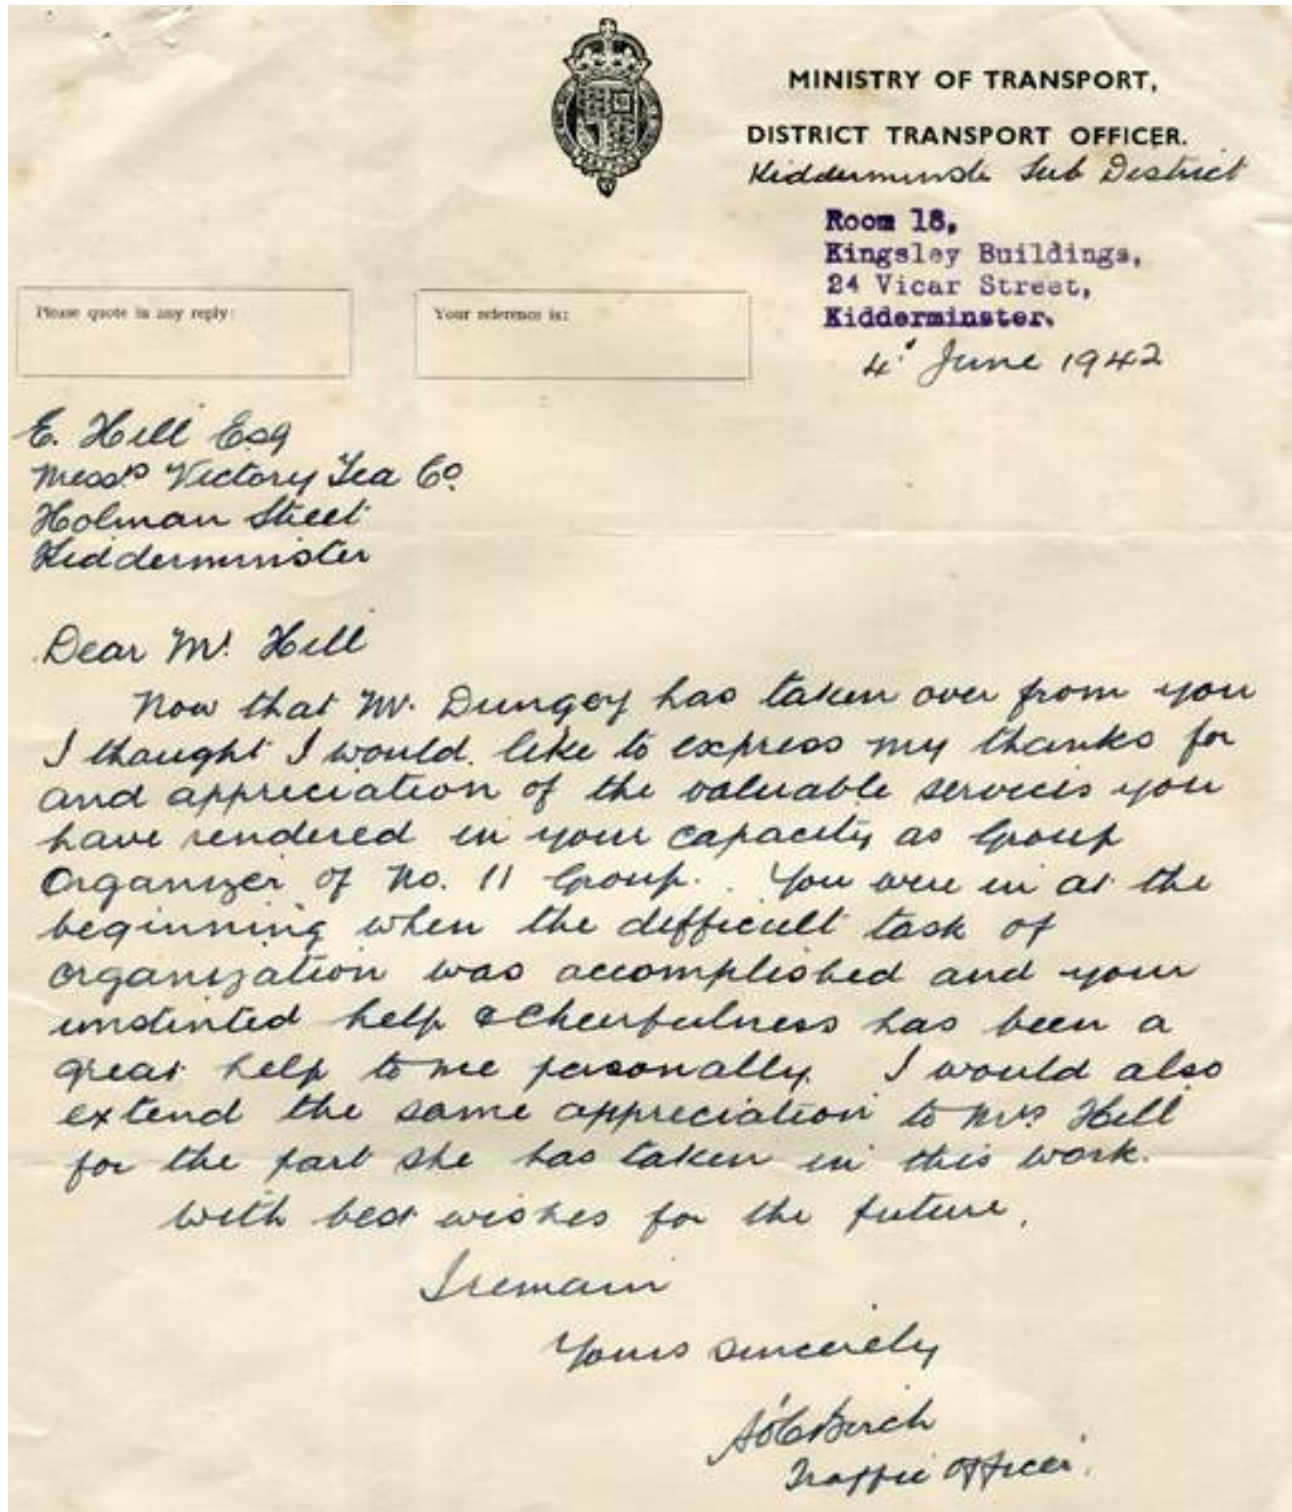 MINISTRY OF TRANSPORT,
DISTRICT TRANSPORT OFFICER.
Kidderminster Sub District
Room 18,
Kingsley Buildings,
24 Vicar Street,
Kidderminster.
Please quote in any reply:
Your reference is:
4' June 1942
E. Hill Esq
Messrs Victory Tea Co.
Holman Street
Kidderminster
Dear Mr. Hill
Now that Mr. Dungey has taken over from you
I thought I would like to express my thanks for
and appreciation of the valuable services you
have rendered in your capacity as Group
Organizer of No. 11 Group. You were in at the
beginning when the difficult task of
organization was accomplished and your
unstinted help & cheerfulness has been a
great help to me personally. I would also
extend the same appreciation to Mrs Hill
for the part she has taken in this work.
With best wishes for the future,
I remain
Yours sincerely
Birch
Traffic Officer.